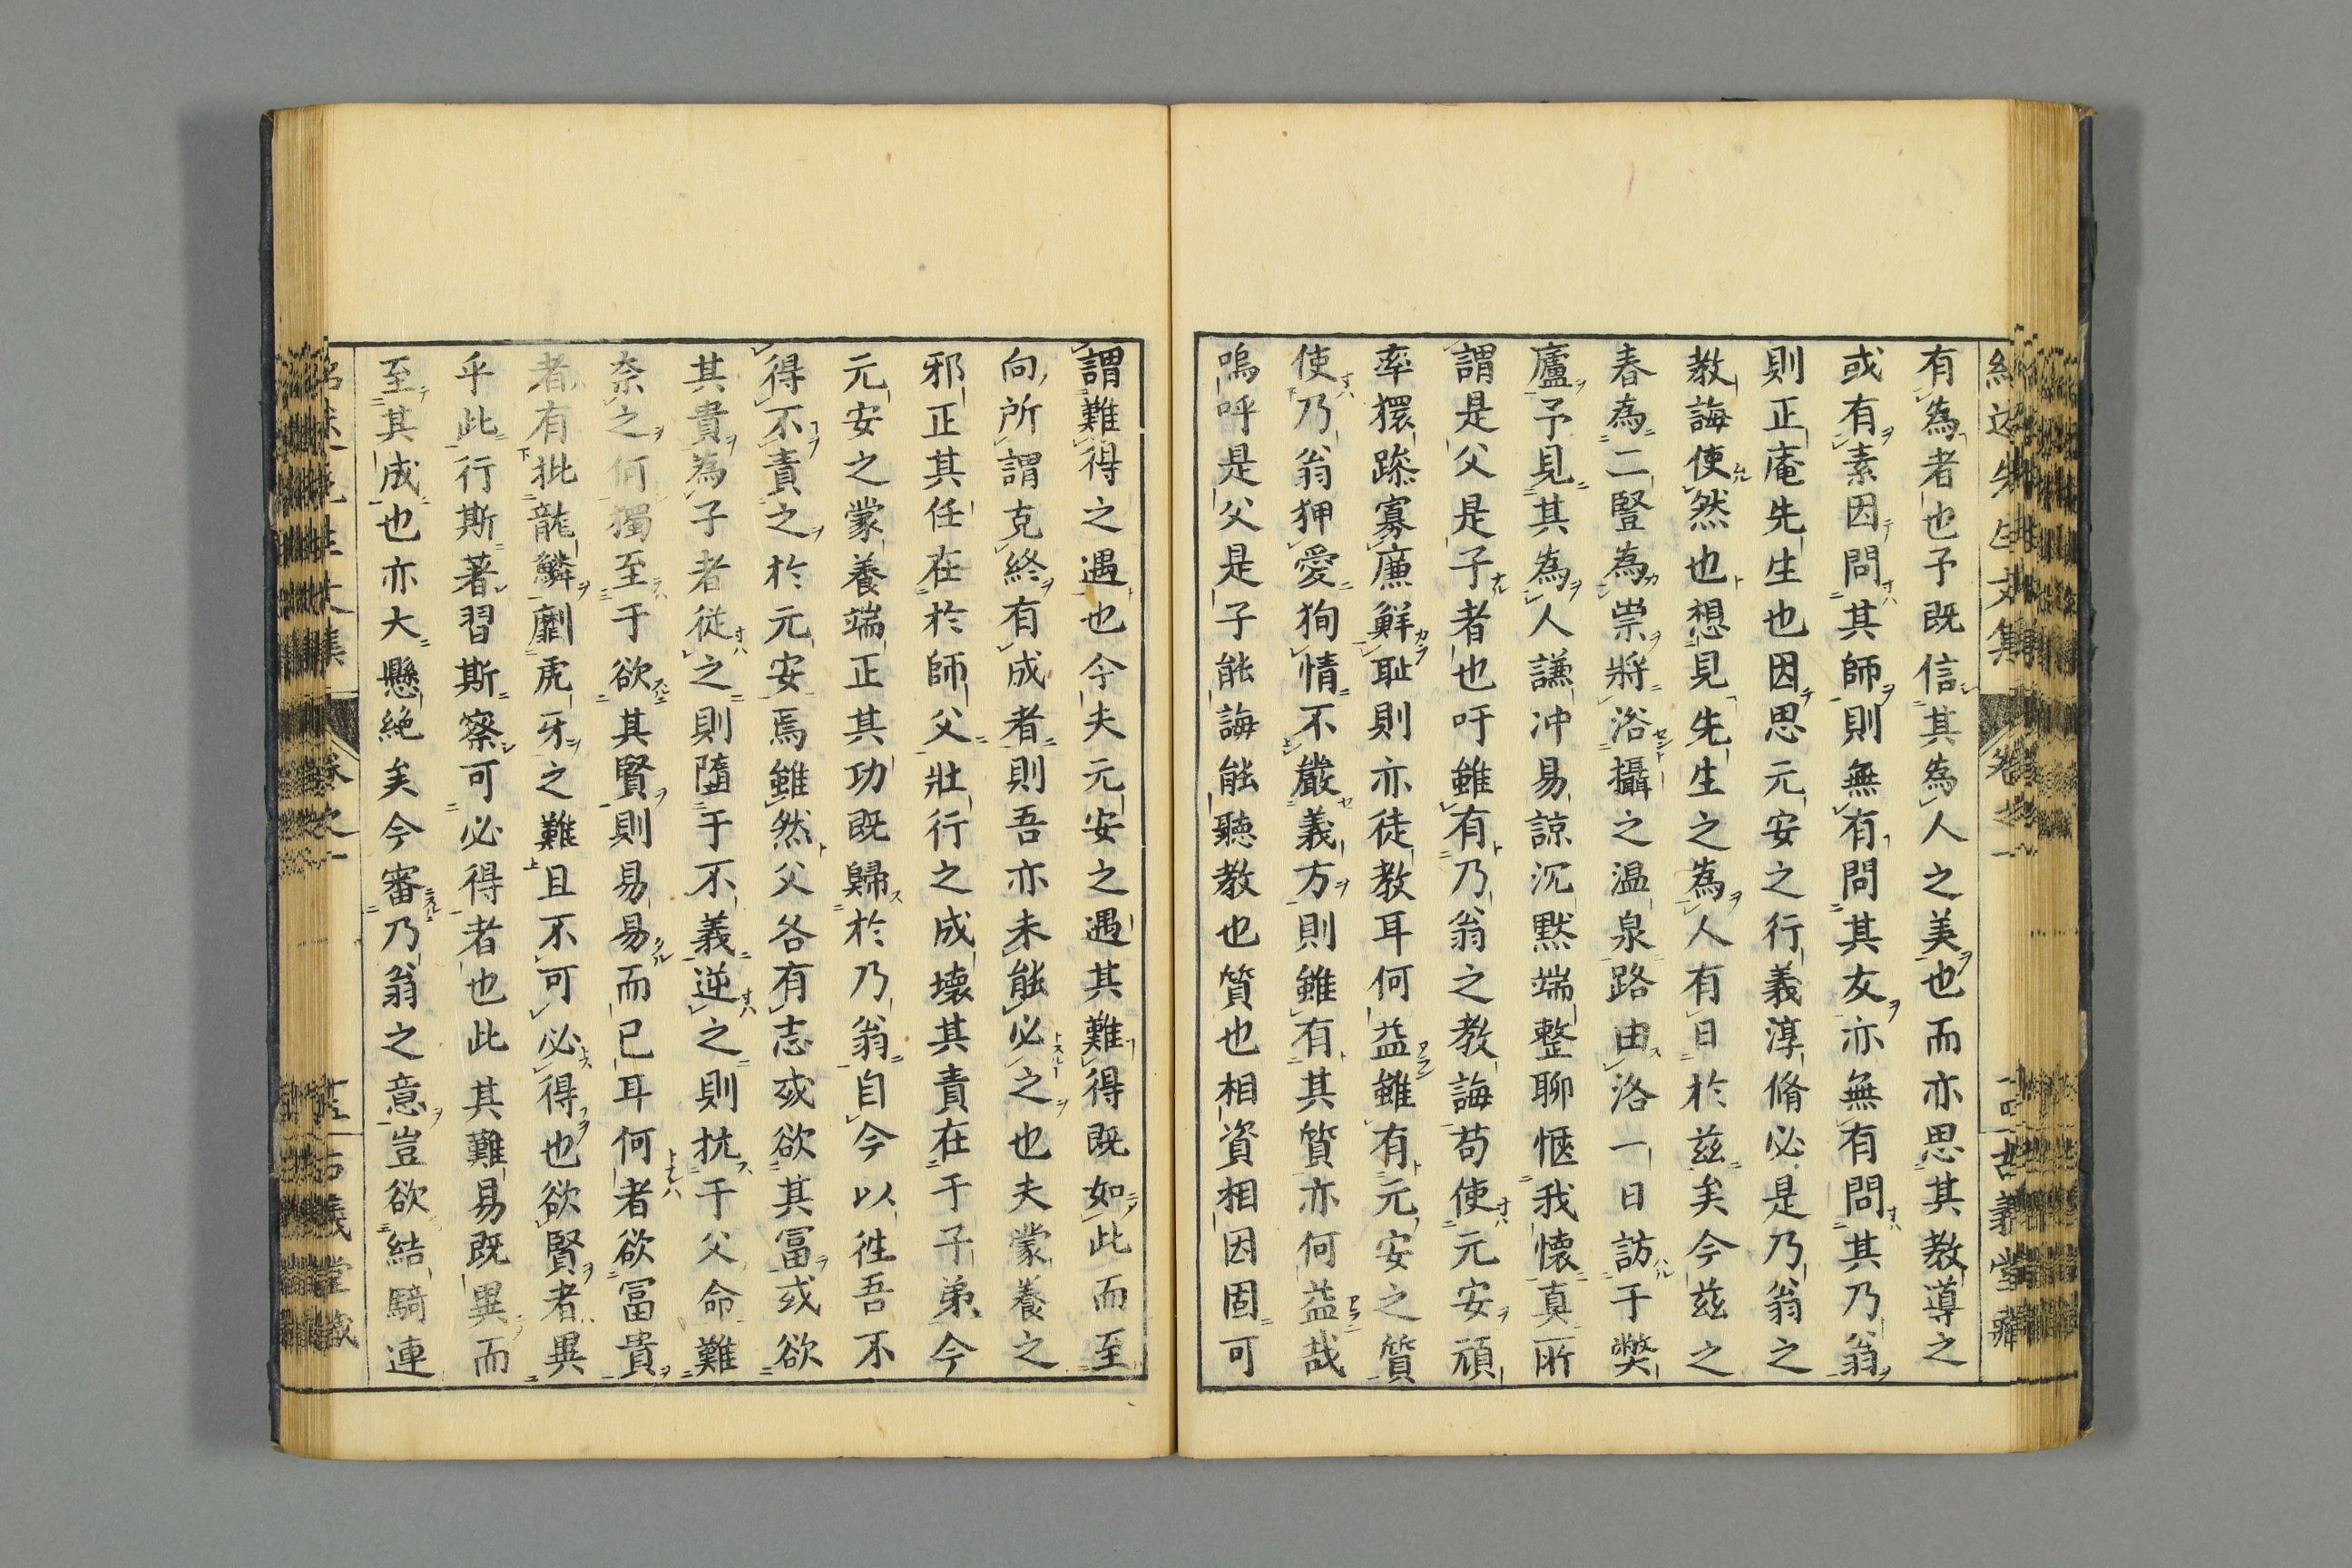 有為者也予既信其為人之美也而亦思其教導之
或有素因問其師則無有問其友亦無有問其乃翁
則正庵先生也因思元安之行義淳脩必是乃翁之
教誨使然也想見先生之為人有日於茲矣今茲之
春為二豎為崇將浴攝之温泉路由洛一日訪于獘
廬予見其為人謙冲易諒沉默端整聊愜我懷真所
謂是父是子者也吁雖有乃翁之教誨苟使元安頑
率獧躁寡廉鮮耻則亦徒教耳何益雖有元安之質
使乃翁狎愛狥情不嚴義方則雖有其質亦何益哉
嗚呼是父是子能誨能聽教也質也相資相因固可
謂難得之遇也今夫元安之遇其難得既如此而至
向所謂克終有成者則吾亦未能必之也夫蒙養之
邪正其任在於師父壯行之成壞其責在于子弟今
元安之蒙養端正其功既歸於乃翁自今以徃吾不
得不責之於元安焉雖然父各有志或欲其冨或欲
其貴為子者從之則陷于不義逆之則抗于父命難
奈之何獨至于欲其賢則易易而已耳何者欲冨貴
者有批龍鱗劘虎牙之難且不可必得也欲賢者異
乎此行斯著習斯察可必得者也此其難易既異而
至其成也亦大懸絶矣今審乃翁之意豈欲結騎連
古義堂藏